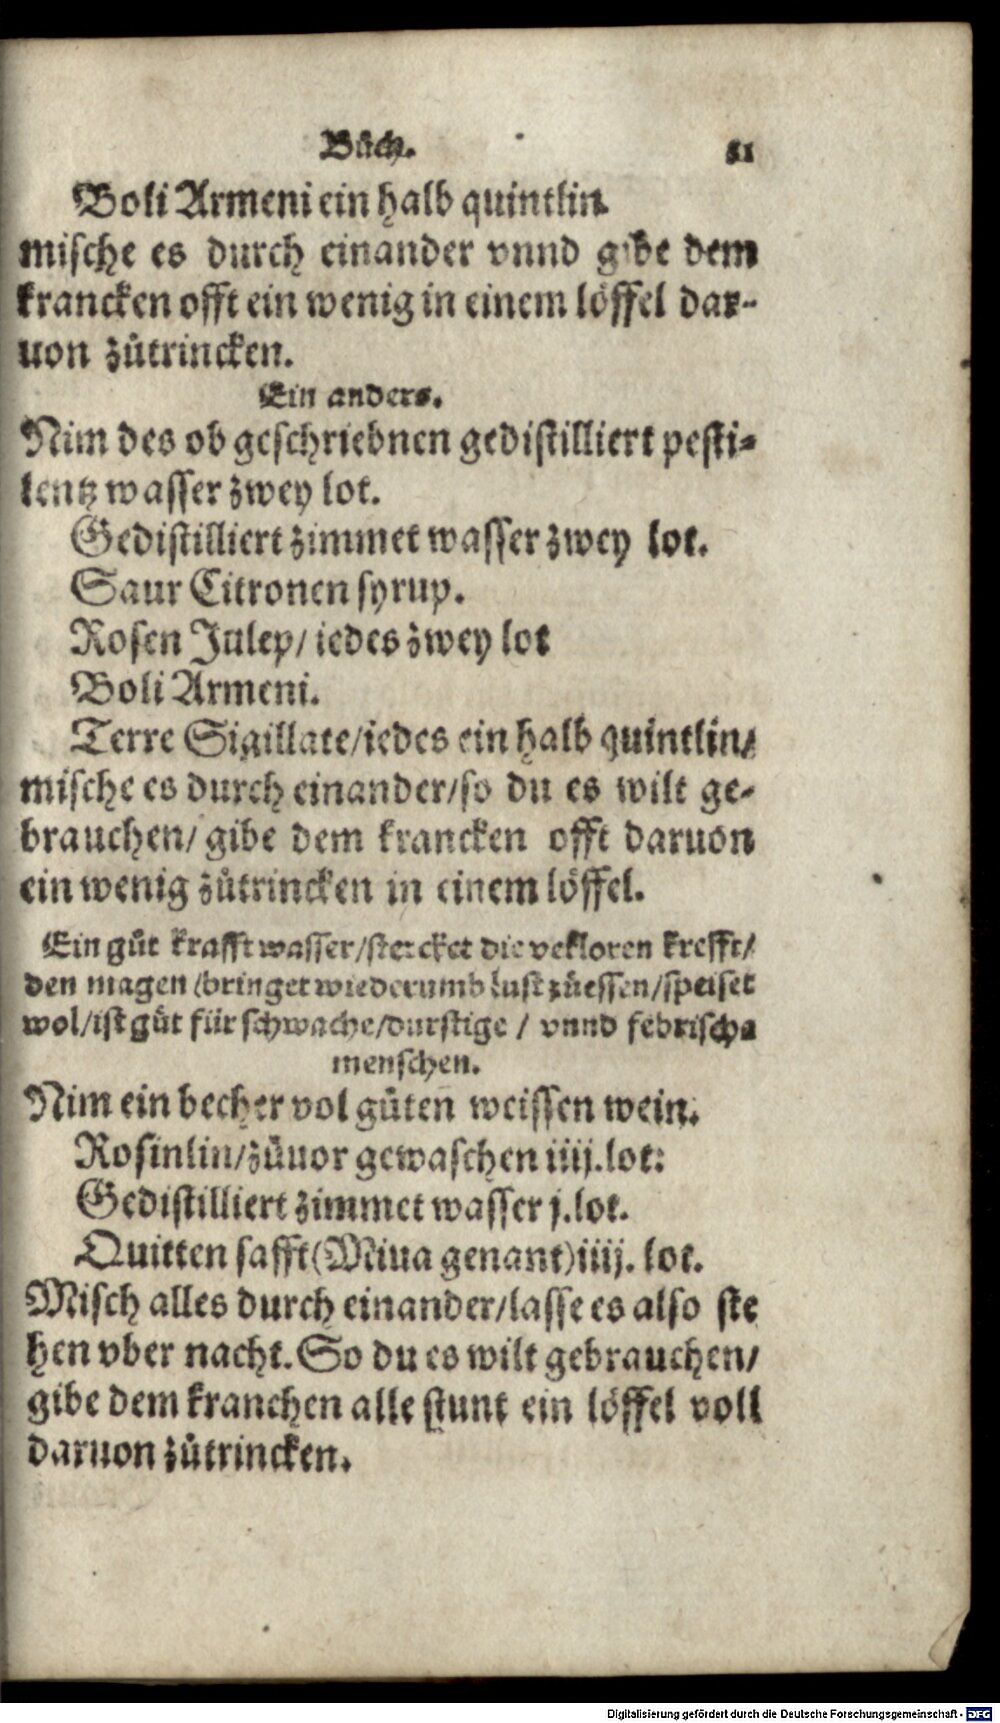 Bůch. 51
Boli Armeni ein halb quintlin.
mische es durch einander vnnd gibe dem
krancken offt ein wenig in einem löffel dar-
uon zůtrincken.
Ein anders.
Nim des ob geschriebnen gedistilliert pesti-
lentz wasser zwey lot.
Gedistilliert zimmet wasser zwey lot.
Saur Citronen syrup.
Rosen Julep/ iedes zwey lot
Boli Armeni.
Terre Sigillate/iedes ein halb quintlin/
mische es durch einander/so du es wilt ge-
brauchen/ gibe dem krancken offt daruon
ein wenig zůtrincken in einem löffel.
Ein gůt krafft wasser/stercket die vekloren krefft/
den magen/bringet wiederumb lust zůessen/speiset
wol/ist gůt für schwache/durstige / vnnd febrische
menschen.
Nim ein becher vol gůten weissen wein.
Rosinlin/zůuor gewaschen iiij.lot:
Gedistilliert zimmet wasser j.lot.
Quitten safft(Miua genant)iiij. lot.
Misch alles durch einander/lasse es also ste
hen vber nacht. So du es wilt gebrauchen/
gibe dem kranchen alle stunt ein löffel voll
daruon zůtrincken.
Digitalisierung gefördert durch die Deutsche Forschungsgemeinschaft - DFG